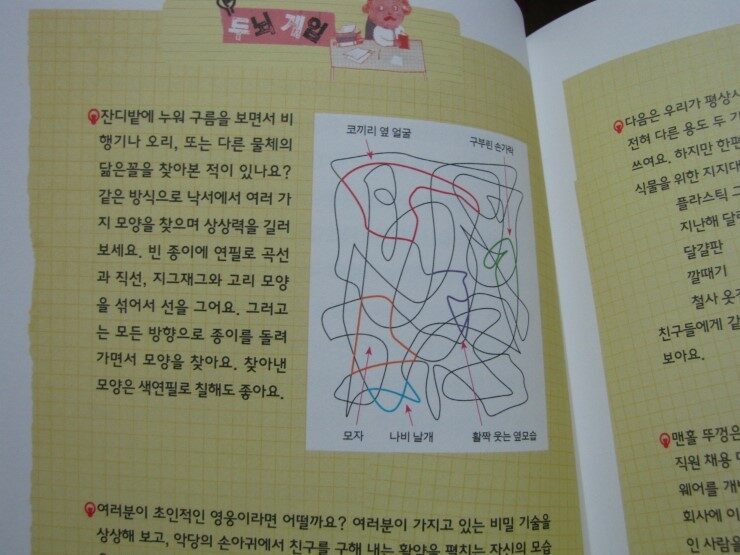 두뇌 게임
잔디밭에 누워 구름을 보면서 비
행기나 오리, 또는 다른 물체의
닮은꼴을 찾아본 적이 있나요?
같은 방식으로 낙서에서 여러 가
지 모양을 찾으며 상상력을 길러
보세요. 빈 종이에 연필로 곡선
과 직선, 지그재그와 고리 모양
을 섞어서 선을 그어요. 그러고
는 모든 방향으로 종이를 돌려
가면서 모양을 찾아요. 찾아낸
모양은 색연필로 칠해도 좋아요.
코끼리 옆 얼굴
구부린 손가락
모자
나비 날개
활짝 웃는 옆모습
여러분이 초인적인 영웅이라면 어떨까요? 여러분이 가지고 있는 비밀 기술을
상상해 보고, 악당의 손아귀에서 친구를 구해 내는 활약을 펼치는 자신의 모습
다음은 우리가 평상시
전혀 다른 용도 두 가
쓰여요. 하지만 한편
식물을 위한 지지대
플라스틱
지난해 달력
달걀판
깔때기
철사 옷
친구들에게 같
보아요.
맨홀 뚜껑은
직원 채용
웨어를 개발
회사에 이
인 사람을